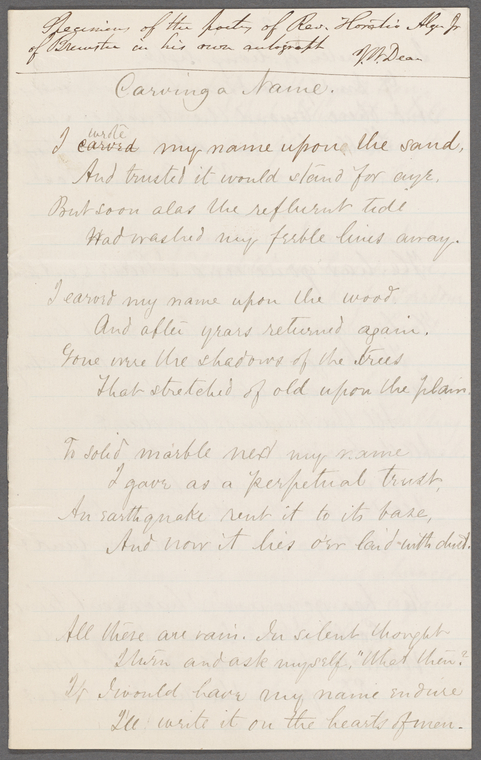 Specimens of the poetry of Rev. Horatio Alger Jr
of Brewster in his own autograph
J. W. Dean
Carving a Name.
wrote
I carved my name upon the sand,
And trusted it would stand for aye.
But soon alas the refluent tide
Had washed my feeble lines away.
I carved my name upon the wood
And after years returned again.
Gone were the shadows of the trees
That stretched of old upon the plain.
To solid marble next my name
I gave as a perpetual trust,
An earthquake rent it to its base,
And now it lies o'er laid with dust.
All these are vain. In silent thought
I turn and ask myself, "What then?
If I would have my name endure
I'll write it on the hearts of men.